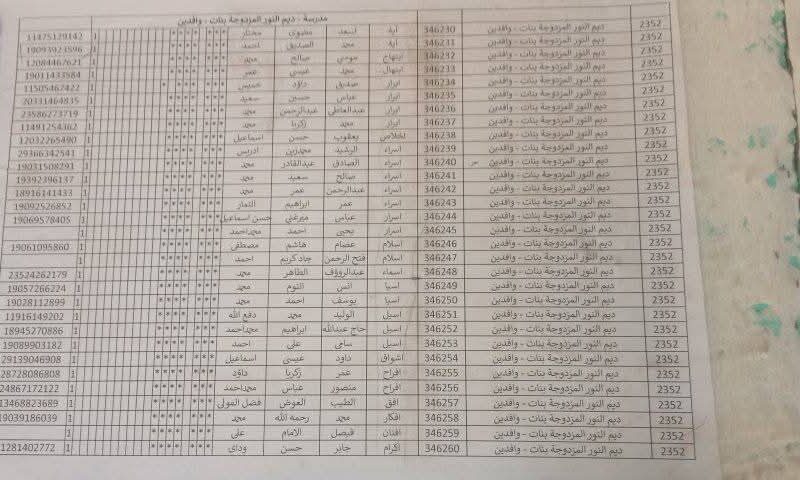 مدرسة - ديم النور المزدوجة بنات - وافدين
2352 ديم النور المزدوجة بنات - وافدين 346230 اية اسعد مضوي مختار *** **** **** 1 11475129142
2352 ديم النور المزدوجة بنات - وافدين 346231 اية محمد الصديق احمد *** **** **** 1 19093923596
2352 ديم النور المزدوجة بنات - وافدين 346232 ابتهاج موسي صالح محمد *** **** **** 1 12084467621
2352 ديم النور المزدوجة بنات - وافدين 346233 ابتهال محمد عيسي عمر *** **** **** 1 19011433584
2352 ديم النور المزدوجة بنات - وافدين 346234 ابرار صديق داؤد خميس *** **** **** 1 11505467422
2352 ديم النور المزدوجة بنات - وافدين 346235 ابرار عباس حسين سعيد *** **** **** 1 20331464835
2352 ديم النور المزدوجة بنات - وافدين 346236 ابرار عبدالعاطي عبدالرحمن محمد *** **** **** 1 23586273719
2352 ديم النور المزدوجة بنات - وافدين 346237 ابرار محمد زكريا محمد *** **** **** 1 11491254362
2352 ديم النور المزدوجة بنات - وافدين 346238 اخلاص يعقوب حسن اسماعيل *** **** **** 1 12032265490
2352 ديم النور المزدوجة بنات - وافدين 346239 اسراء الرشيد محمدزين ادريس *** **** **** 1 29366342541
2352 ديم النور المزدوجة بنات - وافدين 346240 اسراء الصادق عبدالقادر محمد *** **** **** 1 19031508291
2352 ديم النور المزدوجة بنات - وافدين 346241 اسراء صالح سعيد محمد *** **** **** 1 19392396137
2352 ديم النور المزدوجة بنات - وافدين 346242 اسراء عبدالرحمن عمر محمد *** **** **** 1 18916141433
2352 ديم النور المزدوجة بنات - وافدين 346243 اسراء عمر ابراهيم التمار *** **** **** 1 19092526852
2352 ديم النور المزدوجة بنات - وافدين 346244 اسرار عباس ميرغني حسن اسماعيل *** **** **** 1 19069578405
2352 ديم النور المزدوجة بنات - وافدين 346245 اسرار يحيى احمد محمداحمد *** **** **** 1
2352 ديم النور المزدوجة بنات - وافدين 346246 اسلام عصام هاشم مصطفى *** **** **** 1 19061095860
2352 ديم النور المزدوجة بنات - وافدين 346247 اسلام فتح الرحمن جادكريم احمد *** **** **** 1
2352 ديم النور المزدوجة بنات - وافدين 346248 اسماء عبدالرؤوف الطاهر محمد *** **** **** 1 23524262179
2352 ديم النور المزدوجة بنات - وافدين 346249 اسيا انس التوم محمد *** **** **** 1 19057266224
2352 ديم النور المزدوجة بنات - وافدين 346250 اسيا يوسف احمد محمد *** **** **** 1 19028112899
2352 ديم النور المزدوجة بنات - وافدين 346251 اسيل الوليد محمد دفع الله *** **** **** 1 11916149202
2352 ديم النور المزدوجة بنات - وافدين 346252 اسيل حاج عبدالله ابراهيم محمداحمد *** **** **** 1 18945270886
2352 ديم النور المزدوجة بنات - وافدين 346253 اسيل سامي على احمد *** **** **** 1 19089903182
2352 ديم النور المزدوجة بنات - وافدين 346254 اشواق داود عيسى اسماعيل *** **** **** 1 29139046908
2352 ديم النور المزدوجة بنات - وافدين 346255 افراح عمر زكريا داؤد *** **** **** 1 28728086808
2352 ديم النور المزدوجة بنات - وافدين 346256 افراح منصور عباس محمداحمد *** **** **** 1 24867172122
2352 ديم النور المزدوجة بنات - وافدين 346257 افق الطيب العوض فضل المولى *** **** **** 1 13468823689
2352 ديم النور المزدوجة بنات - وافدين 346258 افكار محمد رحمة الله محمد *** **** **** 1 19039186039
2352 ديم النور المزدوجة بنات - وافدين 346259 افنان فيصل الامام على *** **** **** 1
2352 ديم النور المزدوجة بنات - وافدين 346260 اكرام جابر حسن وداي *** **** **** 1 1281402772